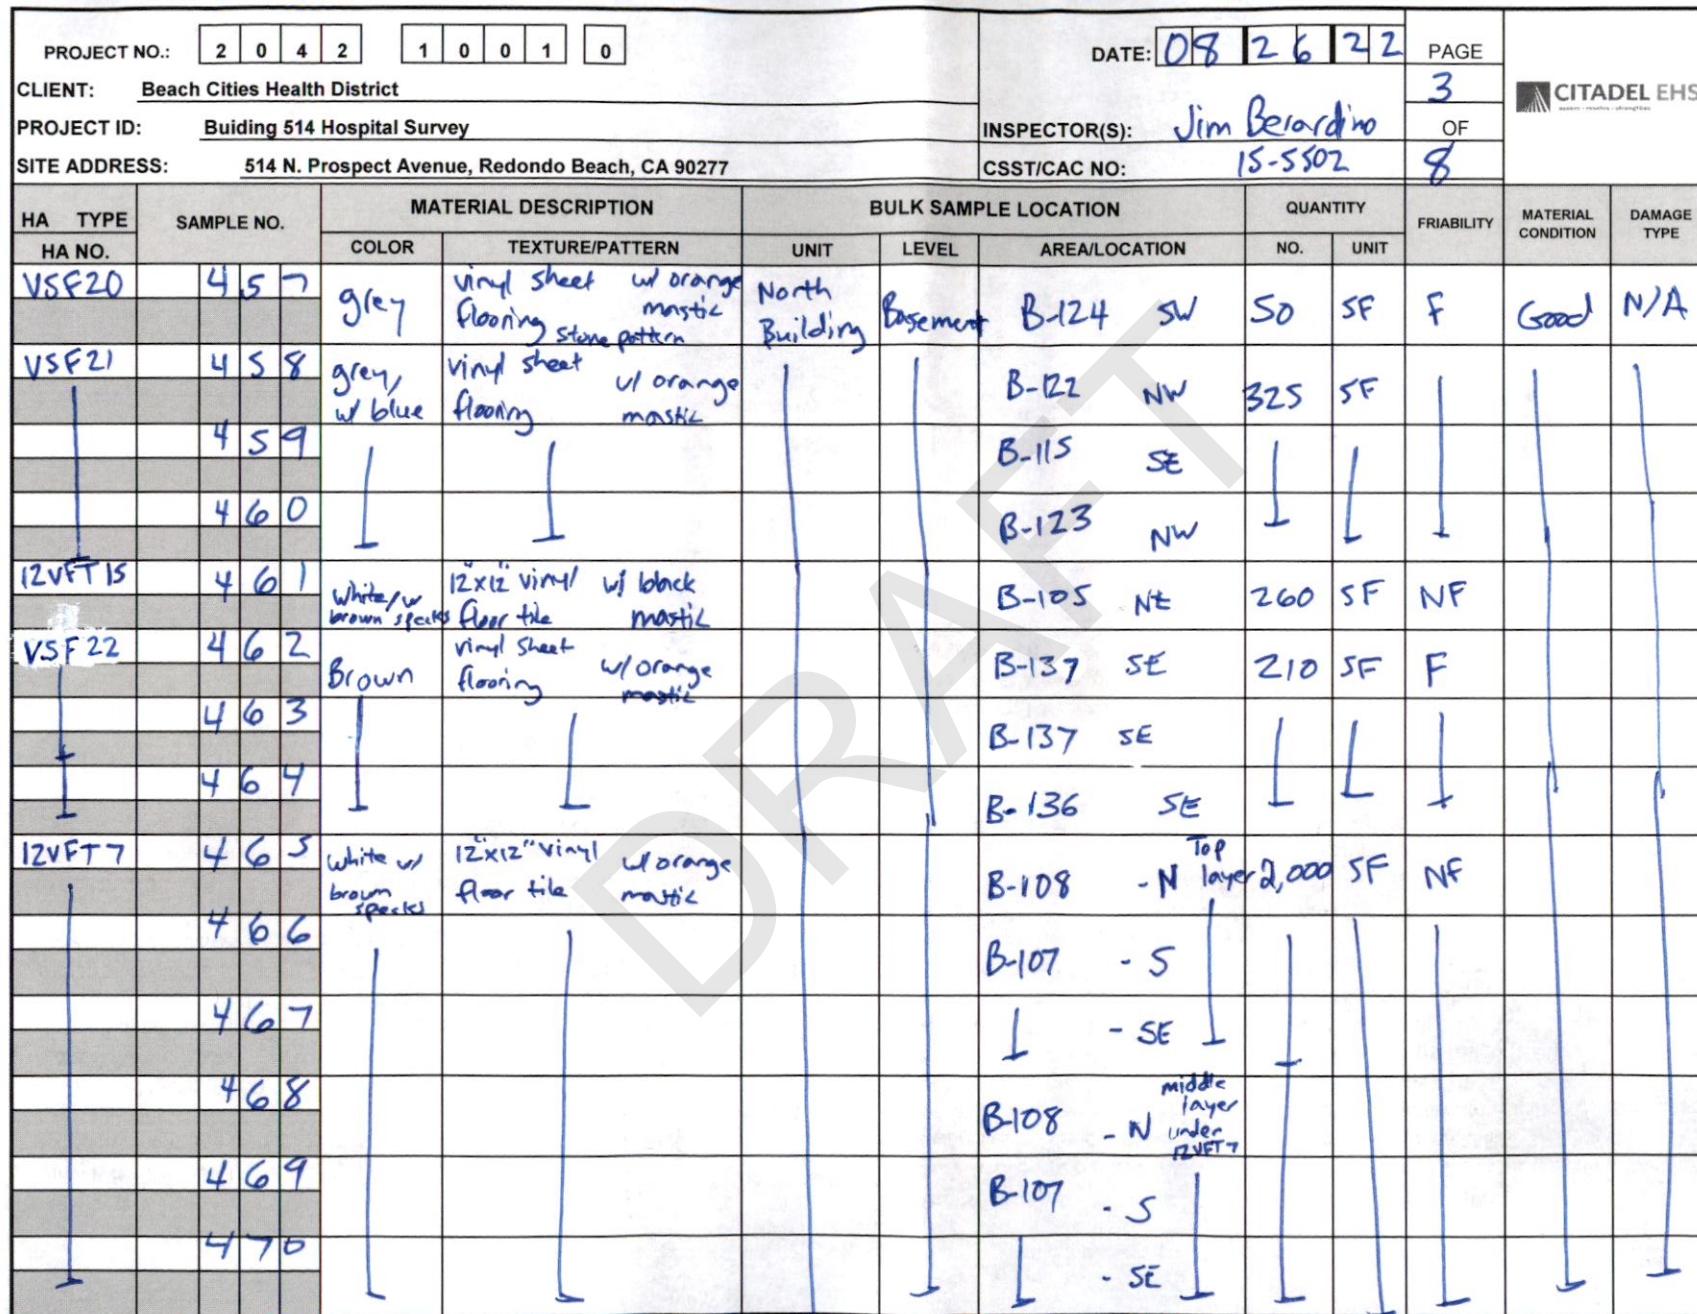 PROJECT NO.: 2 0 4 2 1 0 0 1 0 DATE: 08 26 22 PAGE
3
CLIENT: Beach Cities Health District
CITADEL EHS
PROJECT ID: Buiding 514 Hospital Survey INSPECTOR(S): Jim Berardino OF
SITE ADDRESS: 514 N. Prospect Avenue, Redondo Beach, CA 90277 CSST/CAC NO: 15-5502 8
HA TYPE SAMPLE NO. MATERIAL DESCRIPTION BULK SAMPLE LOCATION QUANTITY FRIABILITY MATERIAL CONDITION DAMAGE TYPE
HA NO. COLOR TEXTURE/PATTERN UNIT LEVEL AREA/LOCATION NO. UNIT
VSF20 457 grey vinyl sheet flooring w/ orange mastic stone pattern North Building Basement B-124 SW 50 SF F Good N/A
VSF21 458 grey, w/ blue vinyl sheet flooring w/ orange mastic B-122 NW 325 SF
459 B-115 SE
460 B-123 NW
12VFT15 461 white/w brown specks 12"x12" vinyl floor tile w/ black mastic B-105 NE 260 SF NF
VSF22 462 Brown vinyl sheet flooring w/ orange mastic B-137 SE 210 SF F
463 B-137 SE
464 B-136 SE
12VFT7 465 white w/ brown specks 12"x12" vinyl floor tile w/ orange mastic B-108 - N Top layer 2,000 SF NF
466 B-107 - S
467 - SE
468 B-108 - N middle layer under 12VFT7
469 B-107 - S
470 - SE
DRAFT